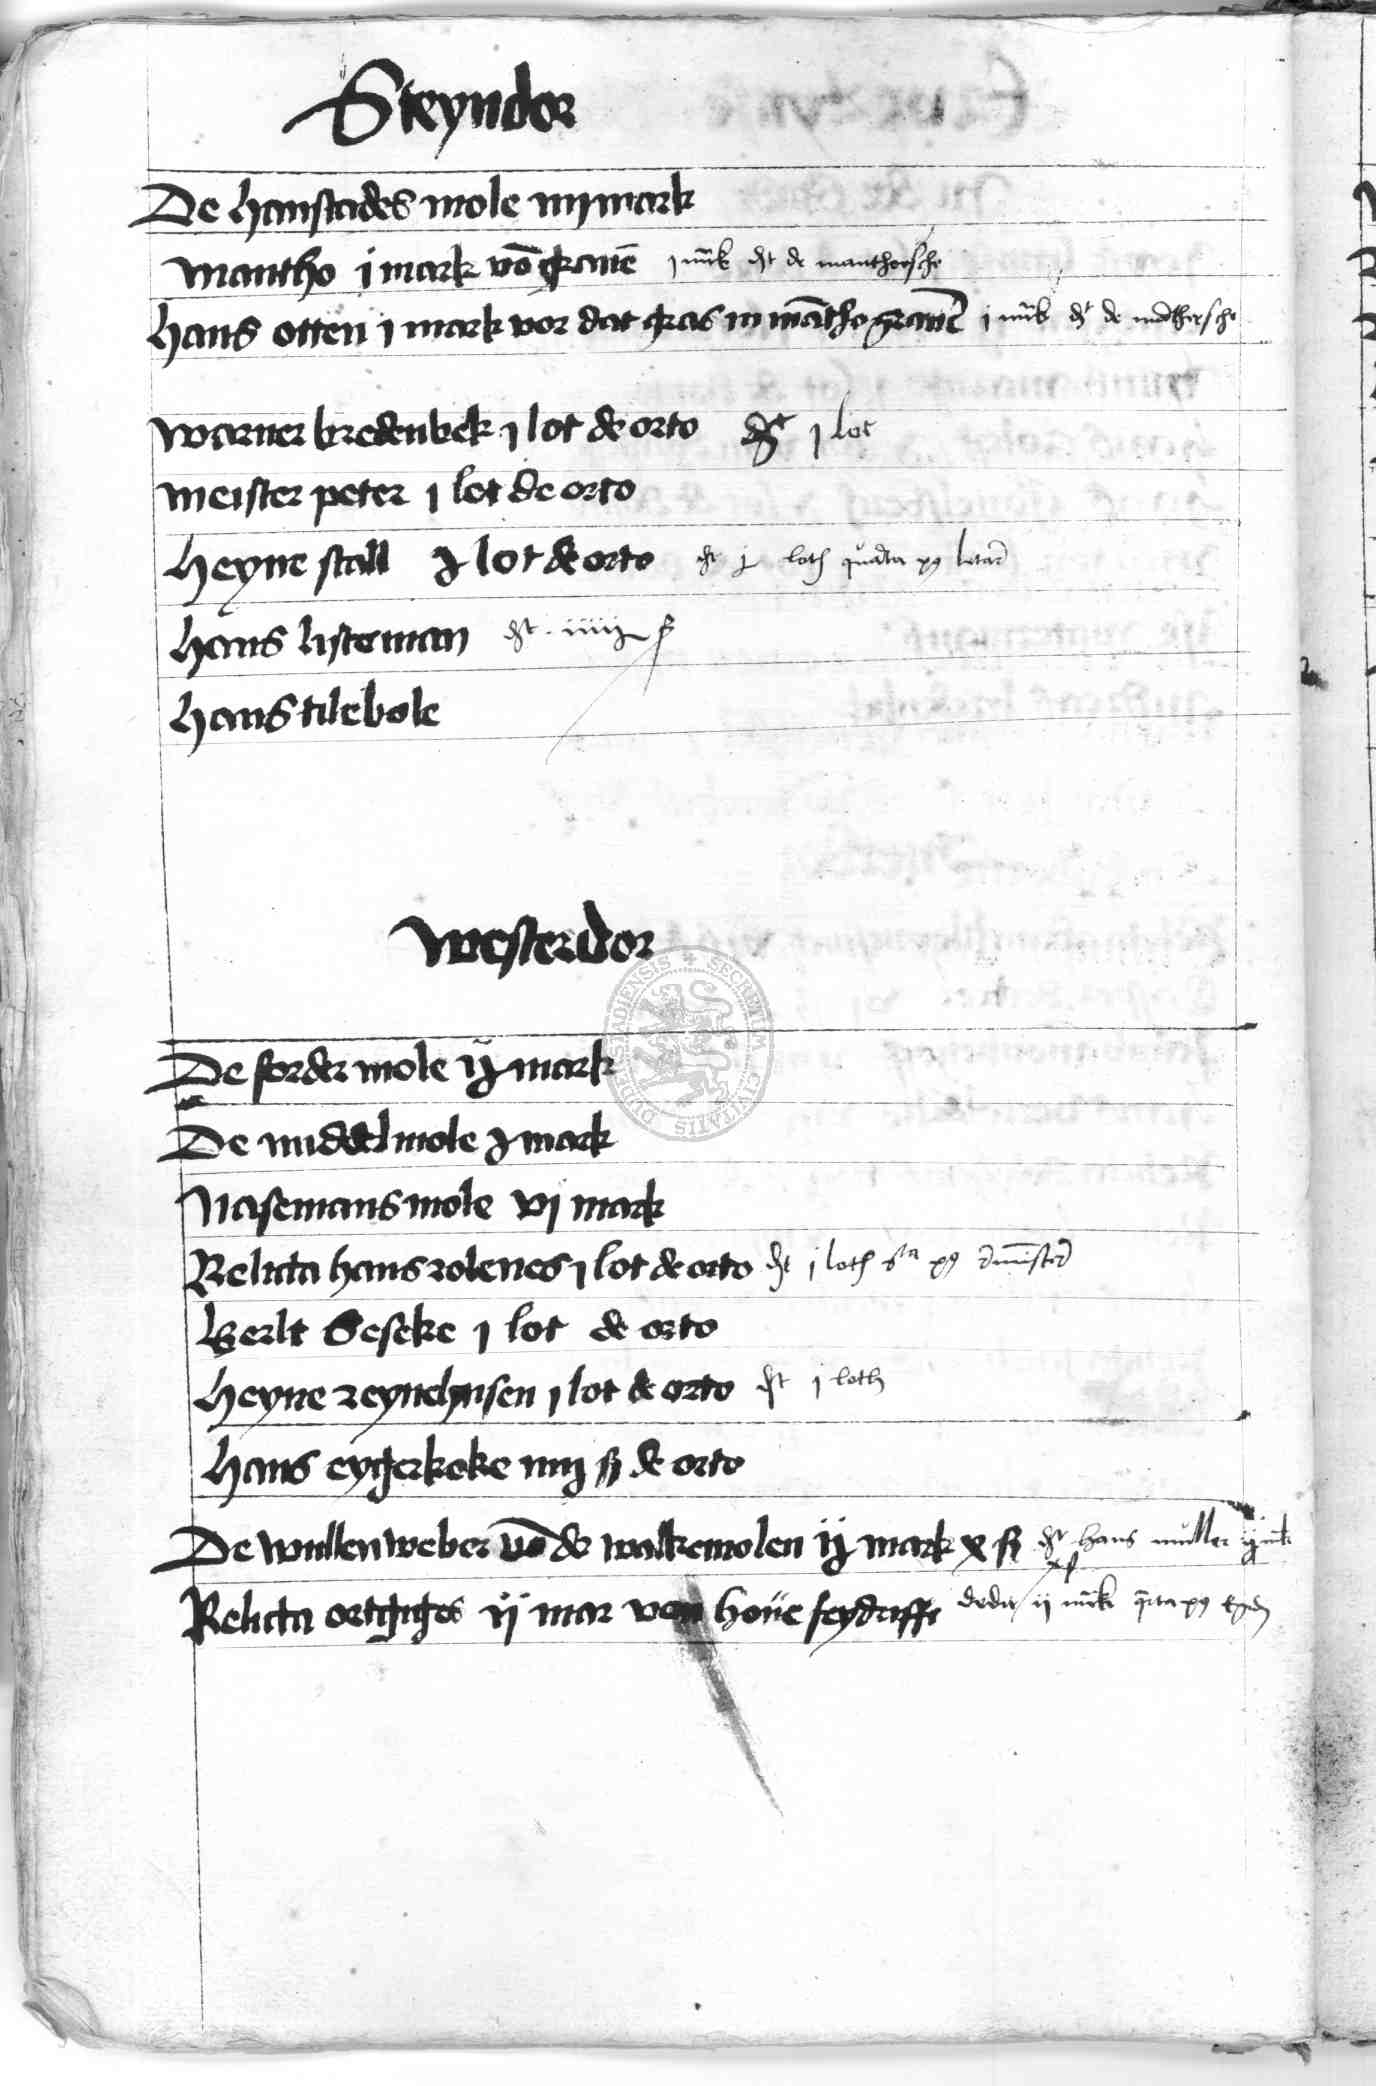 Steyndor
De hanstades mole iiij mark
mantho j mark vō grauē j mrk dt de manthoesche
hans otten j mark vor dat gras in mātho grauē j mrk dt de māthersche
warner bredenbek j lot de orto dt j lot
meister peter j lot de orto
heyne stall j lot de orto dt j loth quarta p9 letar
hans listeman dt iiiij ß
hans tilebole
westerdor
De forder mole ij mark
De middelmole j mark
Nasemans mole vj mark
Relicta hans rolenes j lot de orto dt j loth 6ta p9
Berlt Seseke j lot de orto
heyne reynehusen j lot de orto dt j loth
hans eygerkoke iiij ß de orto
De wullenweber vō de walkemolen ij mark x ß dt hans muller ij mrk
x ß
Relicta ortgiges ij mar von houe seydriffe dedit ij mrk qrta p9
SECRETUM CIVITATIS DUDERSTADIENSIS